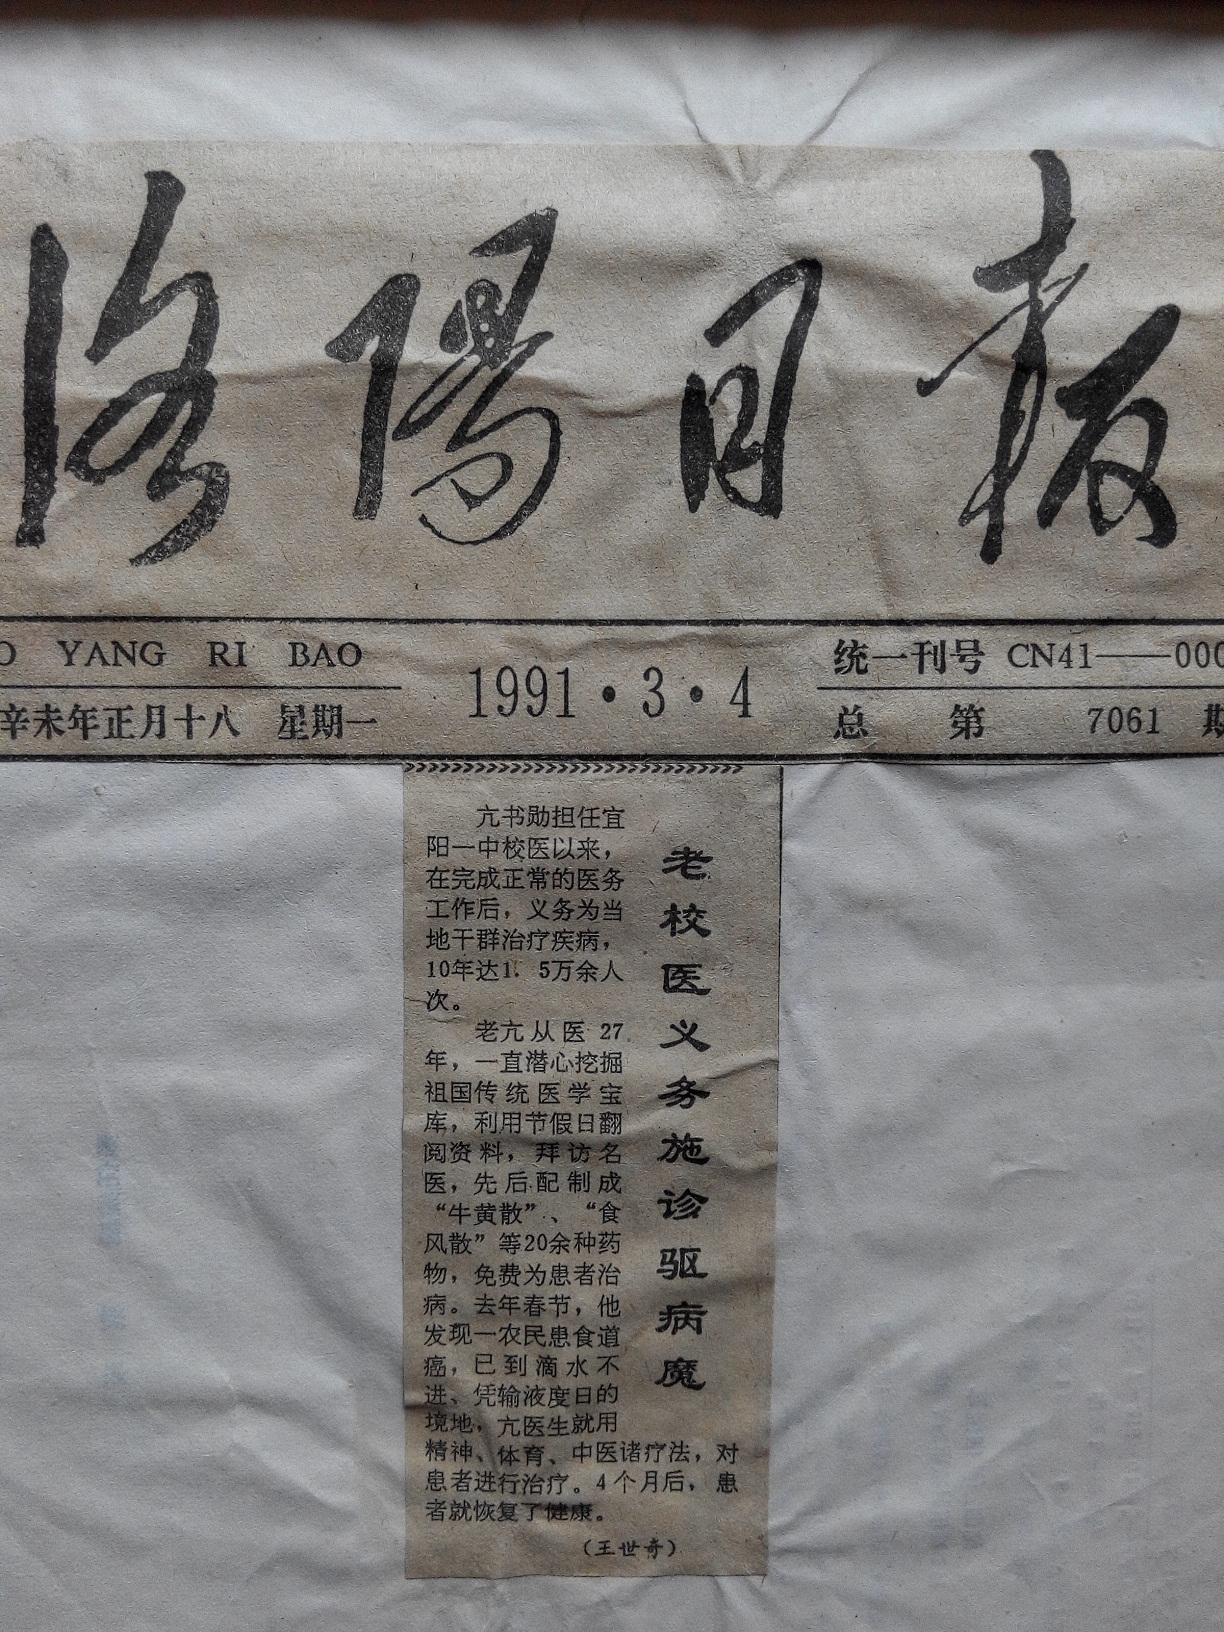 洛陽日报
O YANG RI BAO
辛未年正月十八 星期一
1991·3·4
统一刊号 CN41——000
总 第 7061 期
老校医义务施诊驱病魔
亢书勋担任宜
阳一中校医以来，
在完成正常的医务
工作后，义务为当
地干群治疗疾病，
10年达1．5万余人
次。
老亢从医 27
年，一直潜心挖掘
祖国传统医学宝
库，利用节假日翻
阅资料，拜访名
医，先后配制成
“牛黄散”、“食
风散”等20余种药
物，免费为患者治
病。去年春节，他
发现一农民患食道
癌，已到滴水不
进、凭输液度日的
境地，亢医生就用
精神、体育、中医诸疗法，对
患者进行治疗。4个月后，患
者就恢复了健康。
（王世奇）